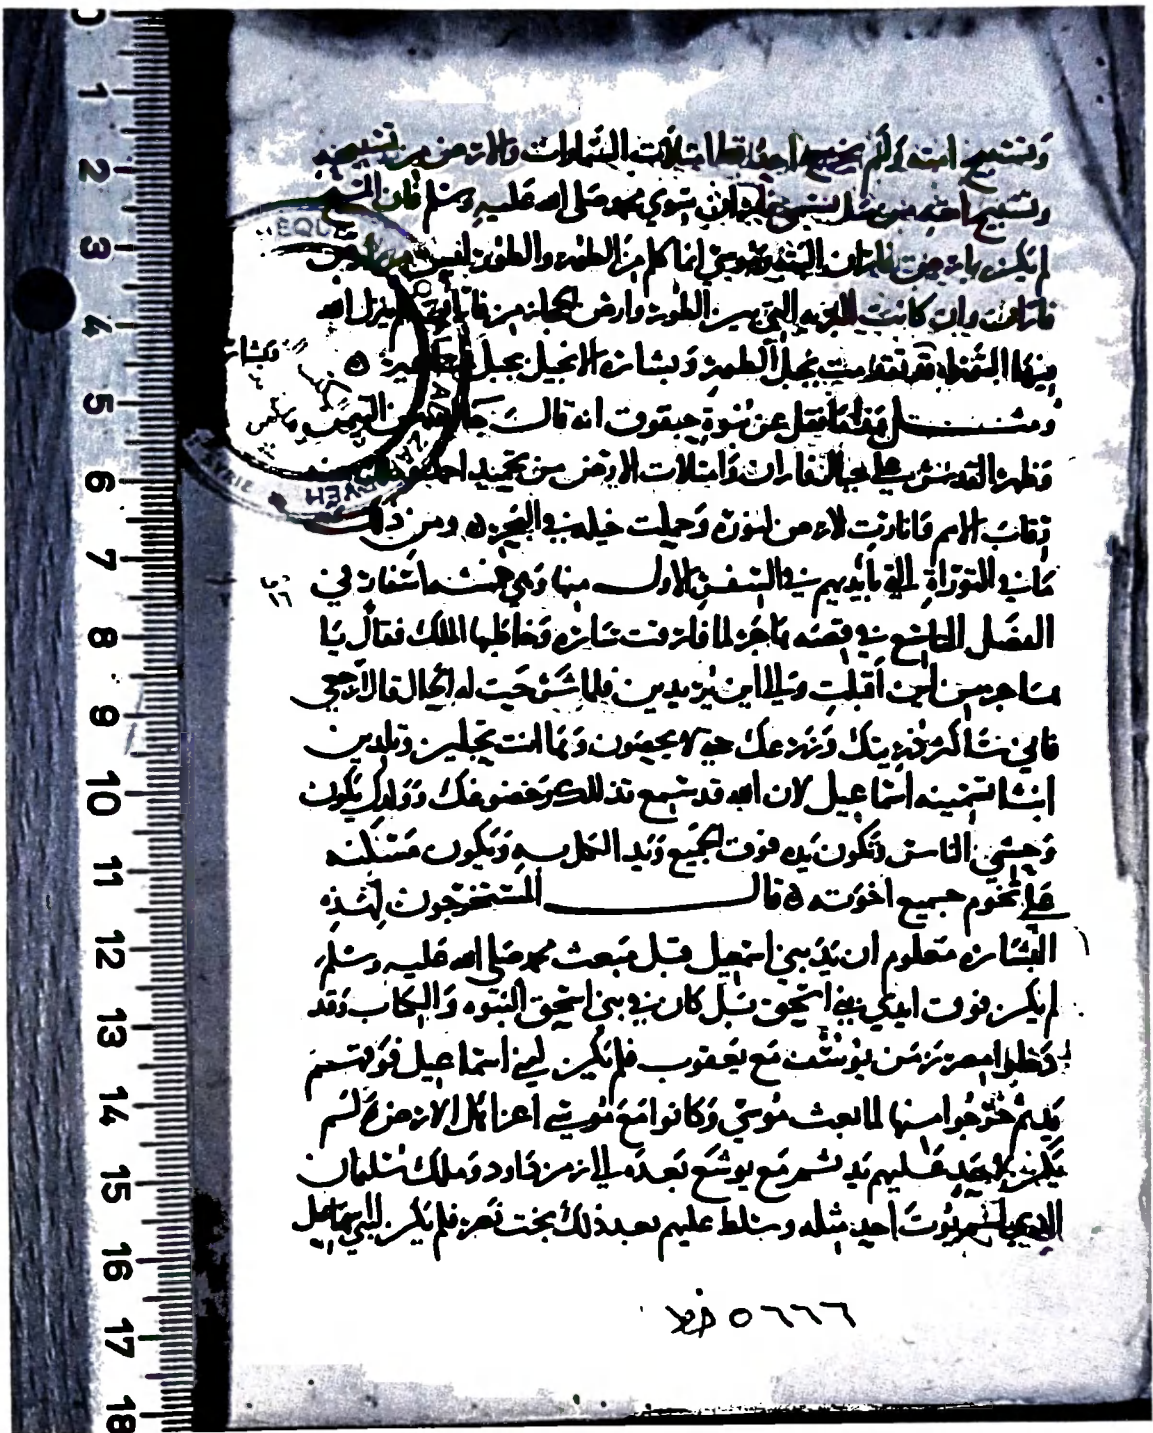 وتسبيح امته ولم يخرج احد قط امتلات السماوات والارض من تسبيحه
وتسبيح امته من سوي محمد صلى الله عليه وسلم فان المسيح
لم يكن بارض فاران البته وموسى انما كلم من الطور والطور ليس من ارض
فاران وان كانت البريه التي بين الطور وارض الحجاز من فاران فلم ينزل الله
فيها التوراه وقد تقدمت بجبل الطور وبشاره الانجيل بجبل ساعير ه
ومثل هذا ما نقل عن نبوة حبقوق انه قال جا الله من التيمن
وظهر القدس على جبال فاران وامتلات الارض من تحميد احمد
رقاب الامم وانارت الارض لنوره وحملت خيله في البحر ه ومن ذلك
ما في التوراة التي بايديهم في السفر الاول منها وهي خمسه اسفار في
الفصل التاسع في قصه هاجر لما فارقت ساره وخاطبها الملك فقال يا
هاجر من اين اقبلت والى اين تريدين فلما شرحت له الحال قال ارجعي
فاني ساكثر ذريتك وزرعك حتى لا يحصون وها انت تحبلين وتلدين
ابنا تسمينه اسماعيل لان الله قد سمع تذللك وخضوعك وولدك يكون
وحشي الناس وتكون يده فوق الجميع ويد الكل به ويكون مسكنه
على تخوم جميع اخوته ه قال المستخرجون لهذه
البشاره معلوم ان يد بني اسمعيل قبل مبعث محمد صلى الله عليه وسلم
لم يكن فوق ايدي بني اسحق بل كان في بني اسحق النبوه والكتاب وقد
دخلوا مصر زمن يوسف مع يعقوب فلم يكن لبني اسماعيل فوقهم
يد ثم خرجوا منها لما بعث موسى وكانوا مع موسى اعز اهل الارض لم
يكن لاحد عليهم يد ثم مع يوشع بعده الى زمن داود وملك سليمان
الذي لم يوت احد مثله وسلط عليهم بعد ذلك بخت نصر فلم يكن لبني اسماعيل
٥٦٦٦